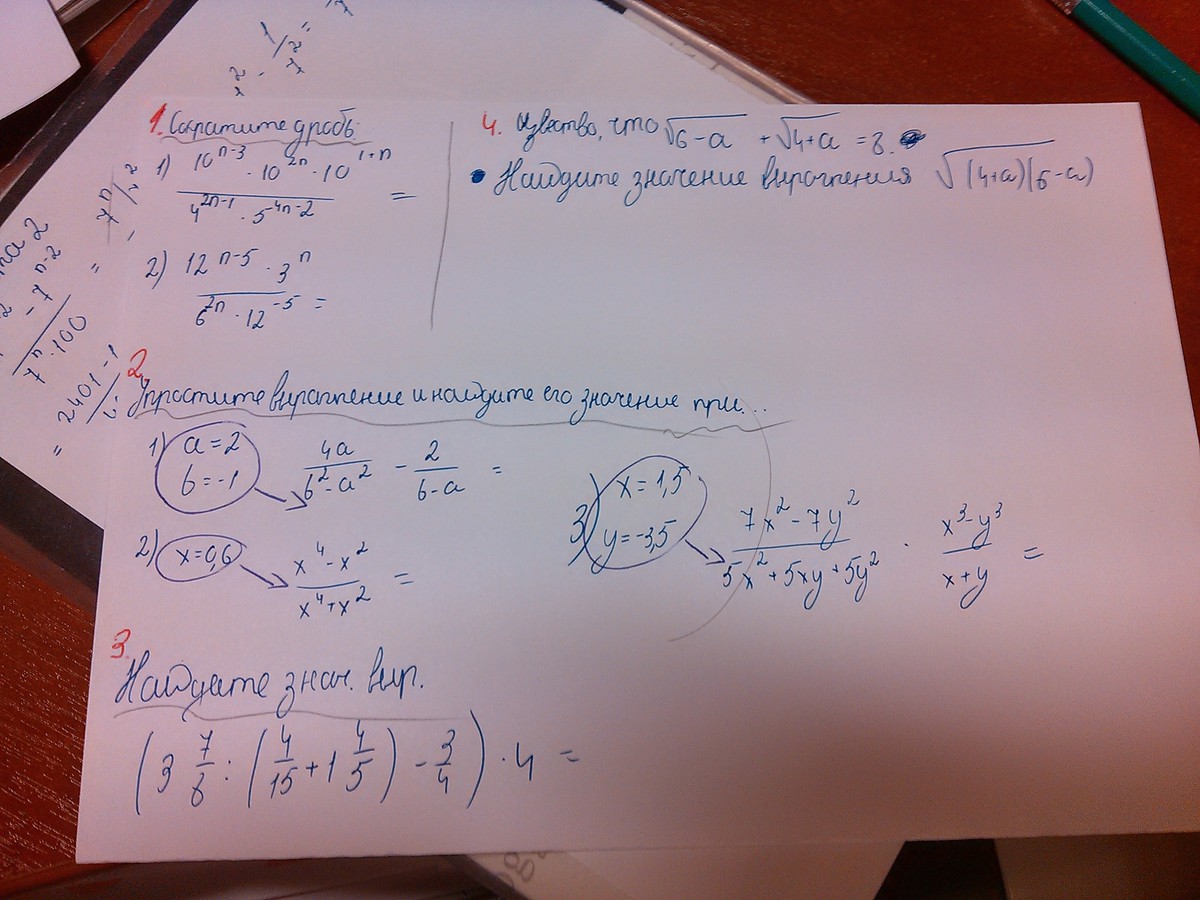 1. Сократите дробь:
1) 10^(n-3) · 10^(2n) · 10^(1+n) / 4^(2n-1) · 5^(4n-2) =
2) 12^(n-5) · 3^n / 6^(2n) · 12^(-5) =
4. Известно, что √(6-a) + √(4+a) = 8.
• Найдите значение выражения √((4+a)(6-a))
2. Упростите выражение и найдите его значение при...
1) a=2 b=-1 4a / b²-a² - 2 / b-a =
2) x=0,6 x⁴-x² / x⁴+x² =
3) x=1,5 y=-3,5 7x²-7y² / 5x²+5xy+5y² · x³-y³ / x+y =
3.
Найдите знач. выр.
(3 7/8 : (4/15 + 1 4/5) - 3/4) · 4 =
7^n · 100
= 2401-1